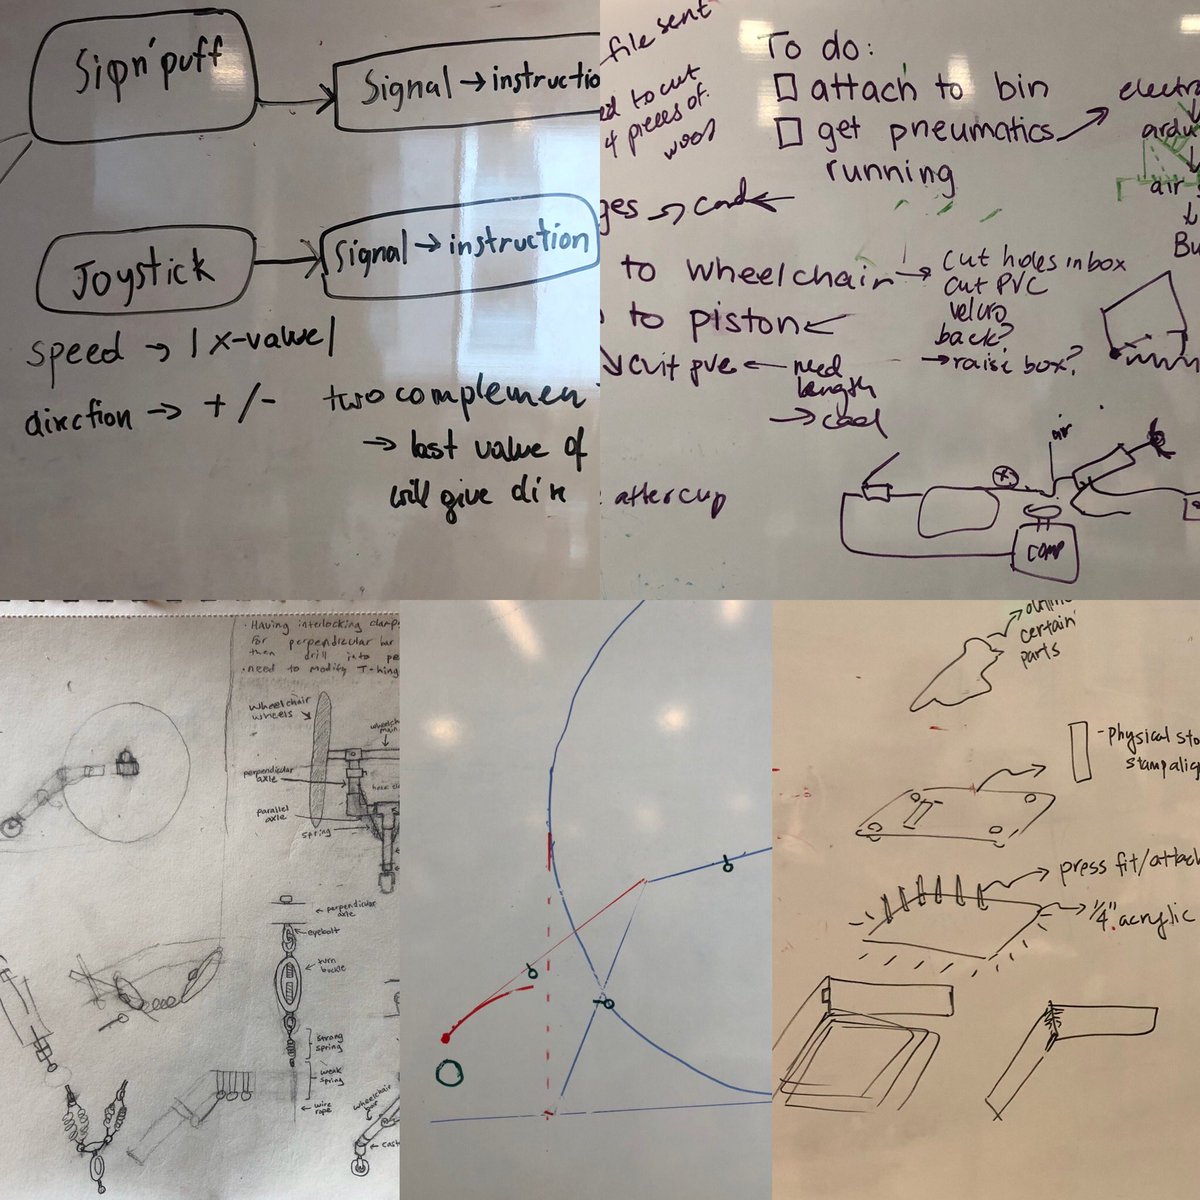 Sip n' puff
Signal → instructio
Joystick
Signal → instruction
speed → | x-value |
dirction → + / -
two complemen
→ last value of
will give dir
file sent
ed to cut
4 pieces of
wood
To do:
□ attach to bin
□ get pneumatics
running
electro
ardu
air
Bu
ges → cad ←
to wheelchair →
cut holes in box
cut PVC
velcro
back?
→ raise box?
to piston ←
cut pvc ← need
length
→ cad
after cup
air
COMP
· Having interlocking clamp
for perpendicular bar
then drill into pe
· need to modify T-hing
wheelchair
wheels
wheelch
main
perpendicular
axle
parallel
axle
spring
perpendicular
axle
eyebolt
turn
buckle
strong
spring
weak
spring
wire
rope
wheelchair
bar
cast
certain
parts
- physical sto
stamp alig
press fit/attach
1/4" acrylic